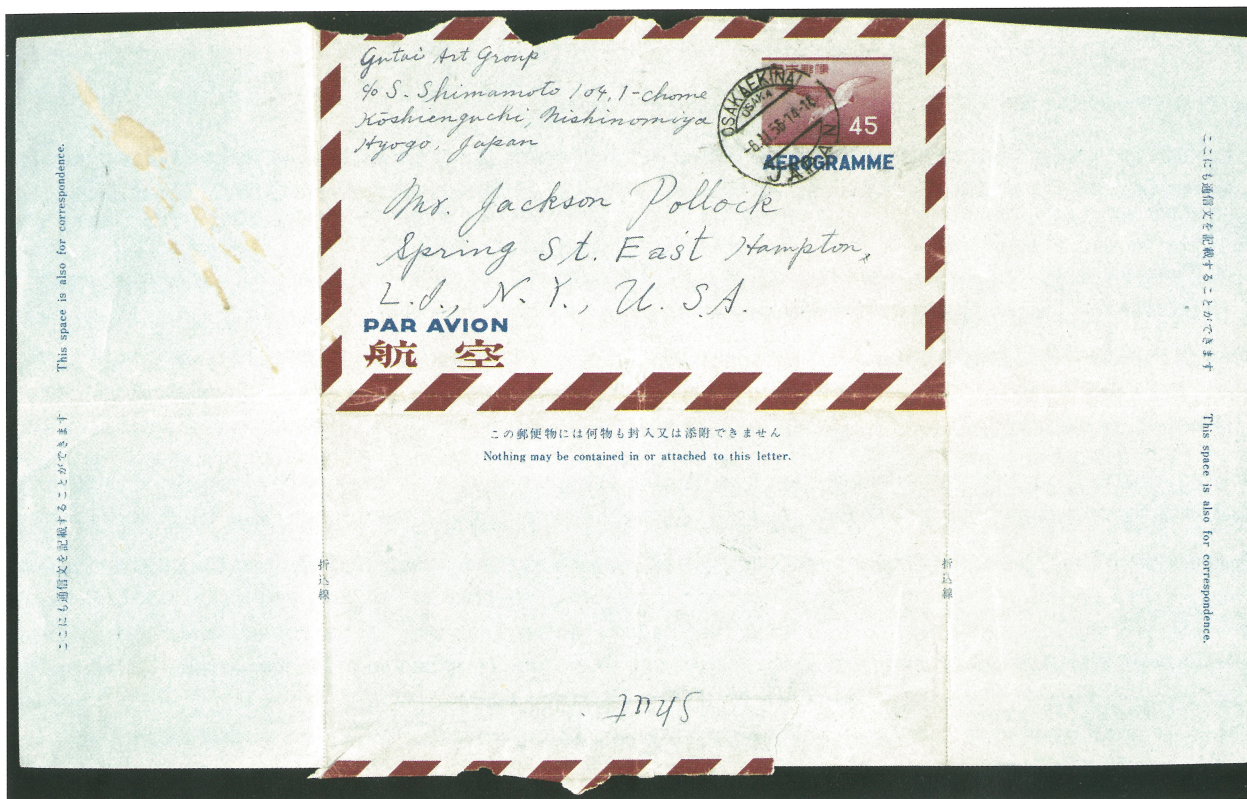 Gutai Art Group
c/o S. Shimamoto 104, 1-chome
Kōshienguchi, Nishinomiya
Hyogo, Japan
日本郵便
OSAKAEKINAI
OSAKA
-6.II.56.14-16
JAPAN
45
AEROGRAMME
Mr. Jackson Pollock
Spring St. East Hampton,
L.I., N.Y., U.S.A.
PAR AVION
航空
この郵便物には何物も封入又は添附できません
Nothing may be contained in or attached to this letter.
This space is also for correspondence.
ここにも通信文を記載することができます
ここにも通信文を記載することができます
This space is also for correspondence.
折込線
折込線
Shut